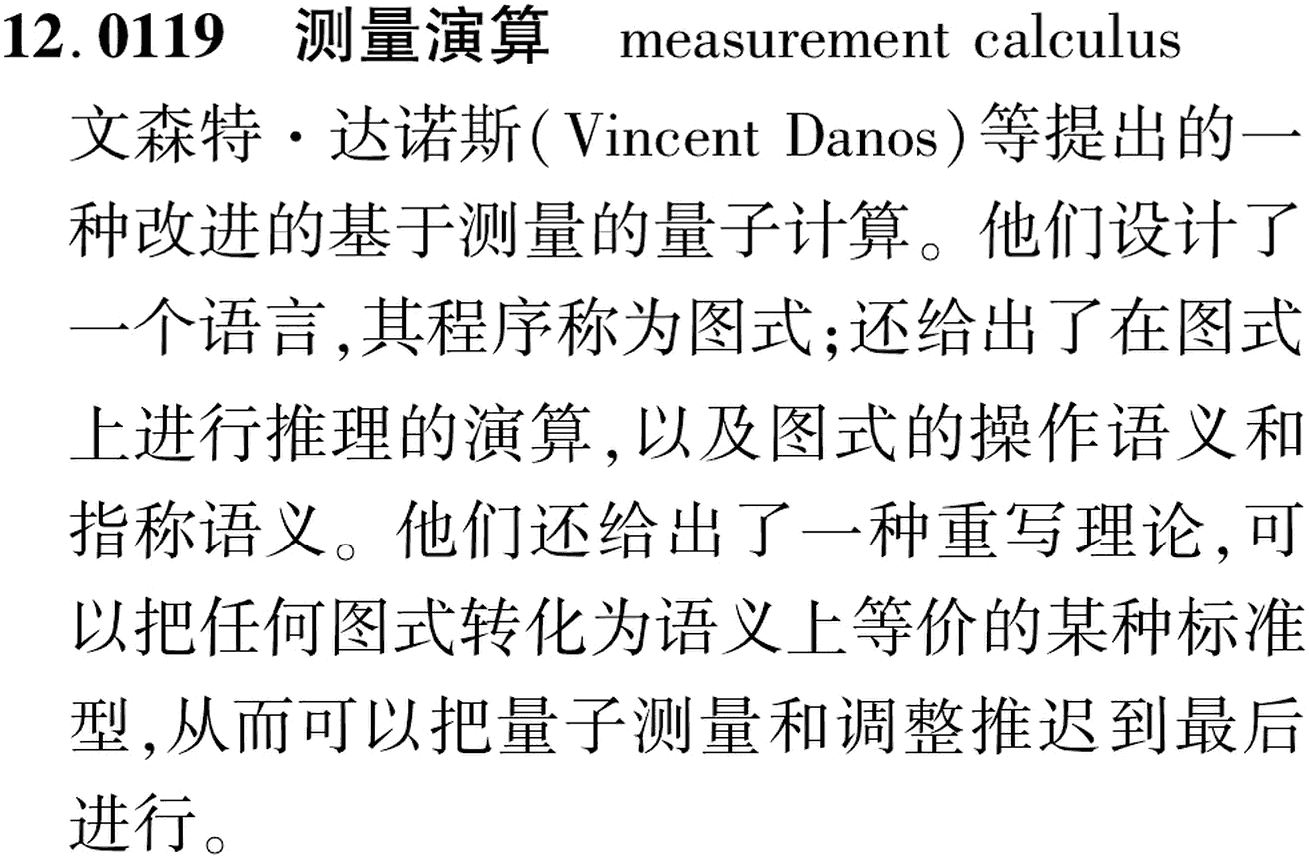 12.0119 测量演算 measurement calculus
文森特·达诺斯(Vincent Danos)等提出的一
种改进的基于测量的量子计算。他们设计了
一个语言,其程序称为图式;还给出了在图式
上进行推理的演算,以及图式的操作语义和
指称语义。他们还给出了一种重写理论,可
以把任何图式转化为语义上等价的某种标准
型,从而可以把量子测量和调整推迟到最后
进行。